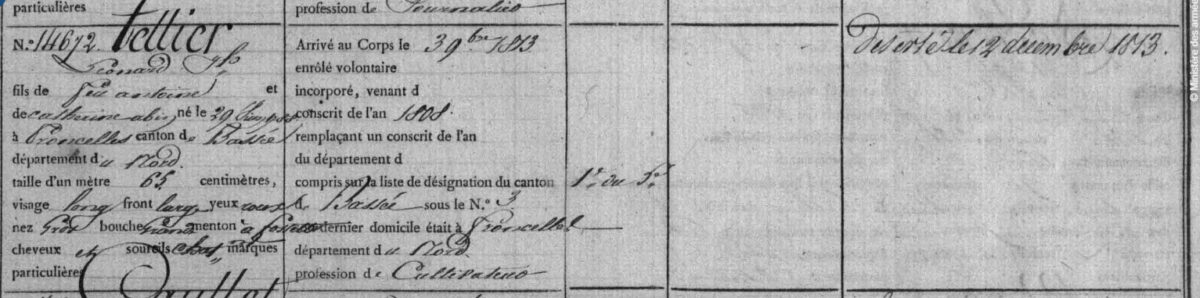 particulières
N.º 14672. Tellier
Léonard Jph
fils de feu antoine et
de catherine abis, né le 29
à fromelles canton de Bassée
département du Nord.
taille d'un mètre 65 centimètres,
visage long front large yeux roux
nez Gros bouche Grande menton à fossette
cheveux et sourcils chat. marques
particulières
profession de Journalier
Arrivé au Corps le 3 9bre 1813
enrôlé volontaire
incorporé, venant d
conscrit de l'an 1808.
remplaçant un conscrit de l'an
du département d
compris sur la liste de désignation du canton
d Bassée sous le N.º 3
dernier domicile était à fromelles
département du Nord.
profession de Cultivateur
1er du 5e
Déserté le 12 decembre 1813.
© Ministère des armées